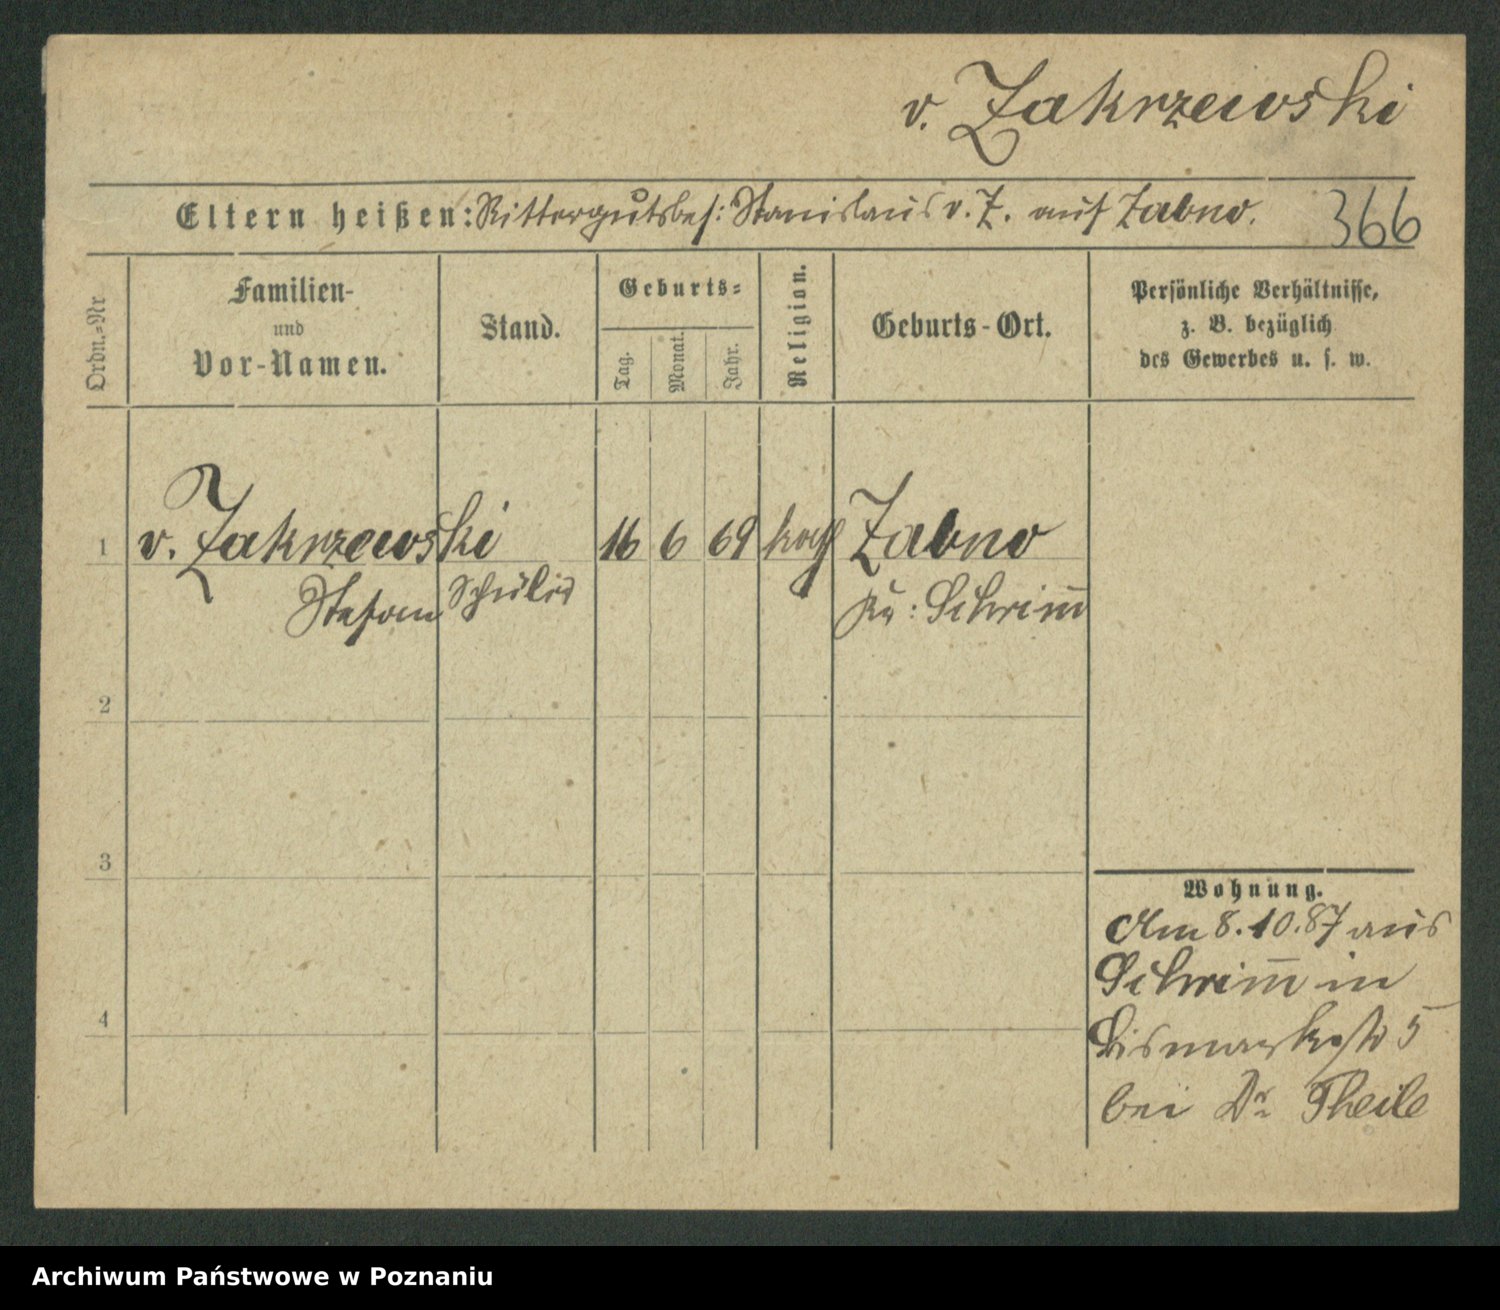 v. Zakrzewski
Eltern heißen: Rittergutsbes: Stanislaus v. Z. auf Zabno. 366
Ordn.-Nr
Familien-
und
Vor-Namen.
Stand.
Geburts-
Tag.
Monat.
Jahr.
Religion.
Geburts-Ort.
Persönliche Verhältnisse,
z. B. bezüglich
des Gewerbes u. s. w.
1 v. Zakrzewski 16 6 69 kath Zabno
Stefan Schüler Kr: Schrim̅
2
3
4
Wohnung.
Am 8.10.87 aus
Schrim̅ in
Bismarkstr 5
bei Dr Theile
Archiwum Państwowe w Poznaniu